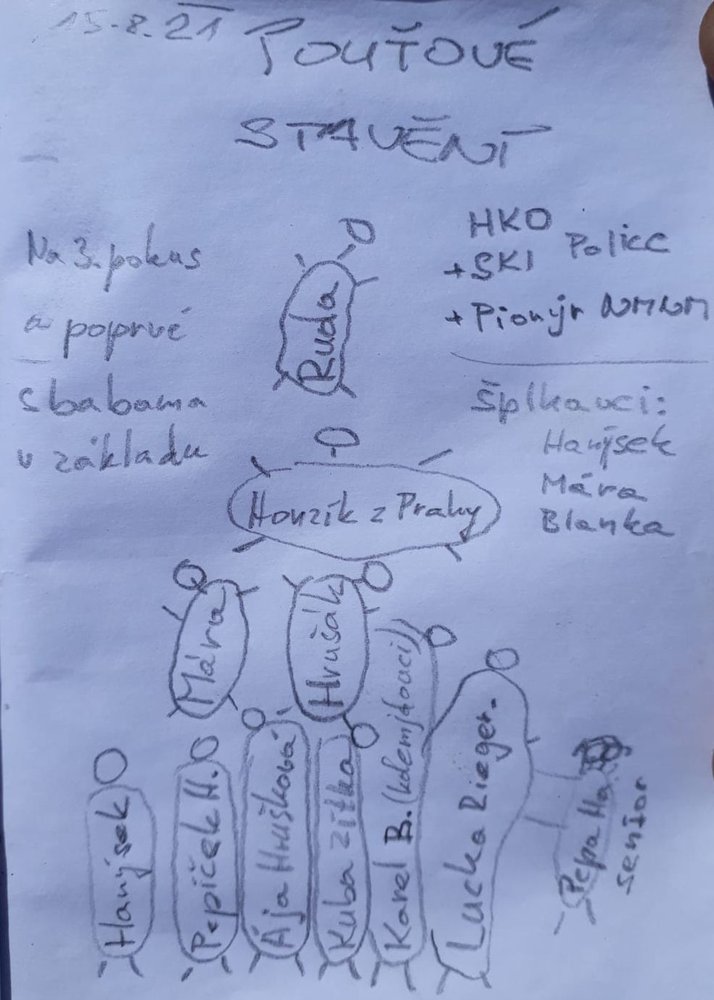 15.8.21
POUŤOVÉ
STAVĚNÍ
Na 3. pokus
a poprvé
s babama
v základu
HKO
+SKI Police
+Pionýr NMNM
Šplhavci:
Hanýsek
Mára
Blanka
Ruda
Honzík z Prahy
Mára
Hrušák
Hanýsek
Pepíček H.
Ája Hrušková
Kuba Zítka
Karel B.
Lucka Rieger.
Pepa Ha
senior